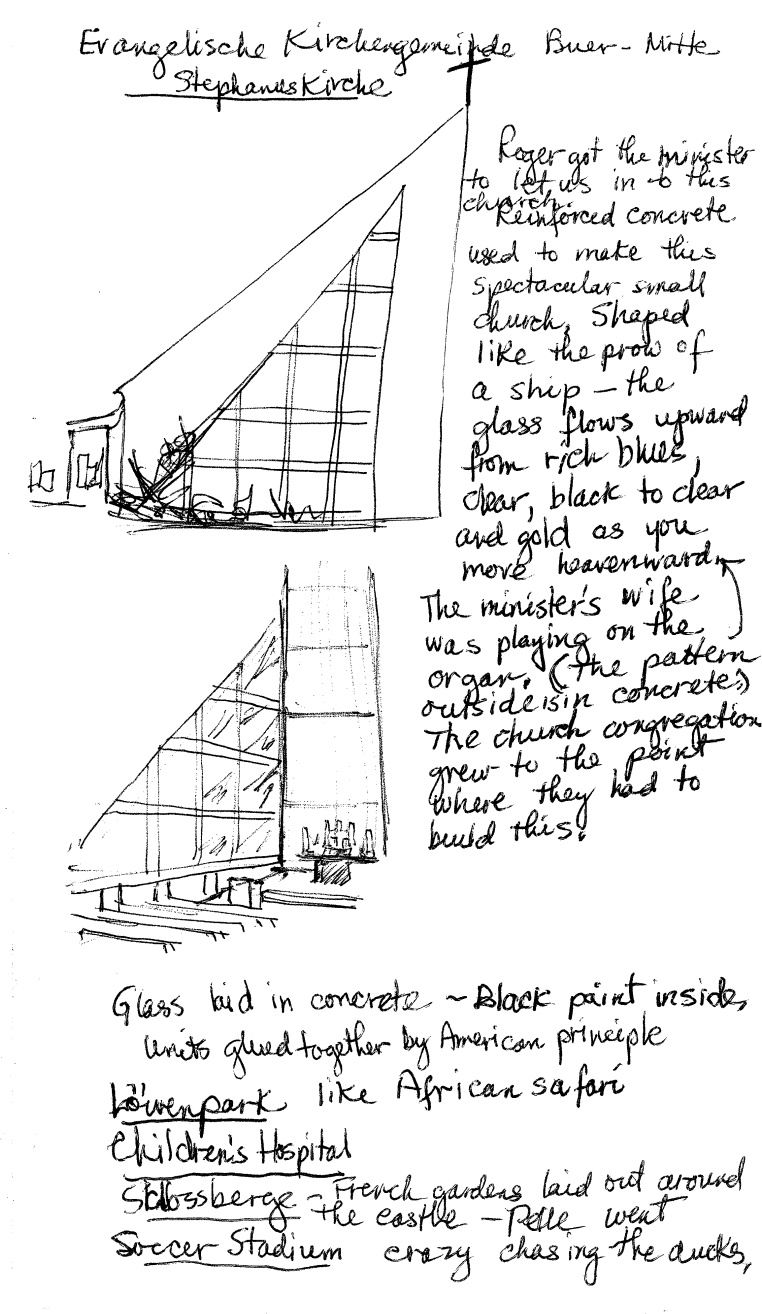 Evangelische Kirchengemeinde Buer-Mitte
Stephanuskirche
Roger got the minister
to let us in to this
church.
Reinforced concrete
used to make this
spectacular small
church. Shaped
like the prow of
a ship – the
glass flows upward
from rich blues,
clear, black to clear
and gold as you
move heavenward.
The minister's wife
was playing on the
organ. (The pattern
outside is in concrete.)
The church congregation
grew to the point
where they had to
build this.
Glass laid in concrete ~ Black paint inside,
Units glued together by American principle
Löwenpark like African safari
Children's Hospital
Schlossberge – French gardens laid out around
the castle – Pelle went
Soccer Stadium crazy chasing the ducks,